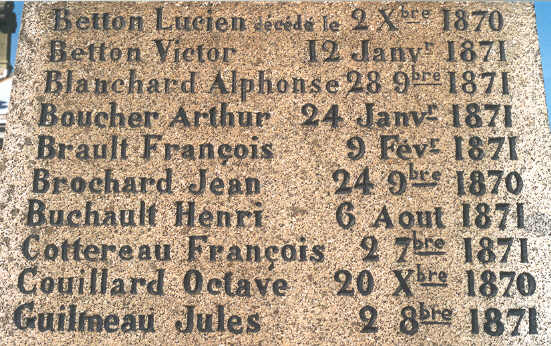 Betton Lucien décédé le 2 Xbre 1870
Betton Victor 12 Janvr 1871
Blanchard Alphonse 28 9bre 1871
Boucher Arthur 24 Janvr 1871
Brault François 9 Févr 1871
Brochard Jean 24 9bre 1870
Buchault Henri 6 Aout 1871
Cottereau François 2 7bre 1871
Couillard Octave 20 Xbre 1870
Guilmeau Jules 2 8bre 1871